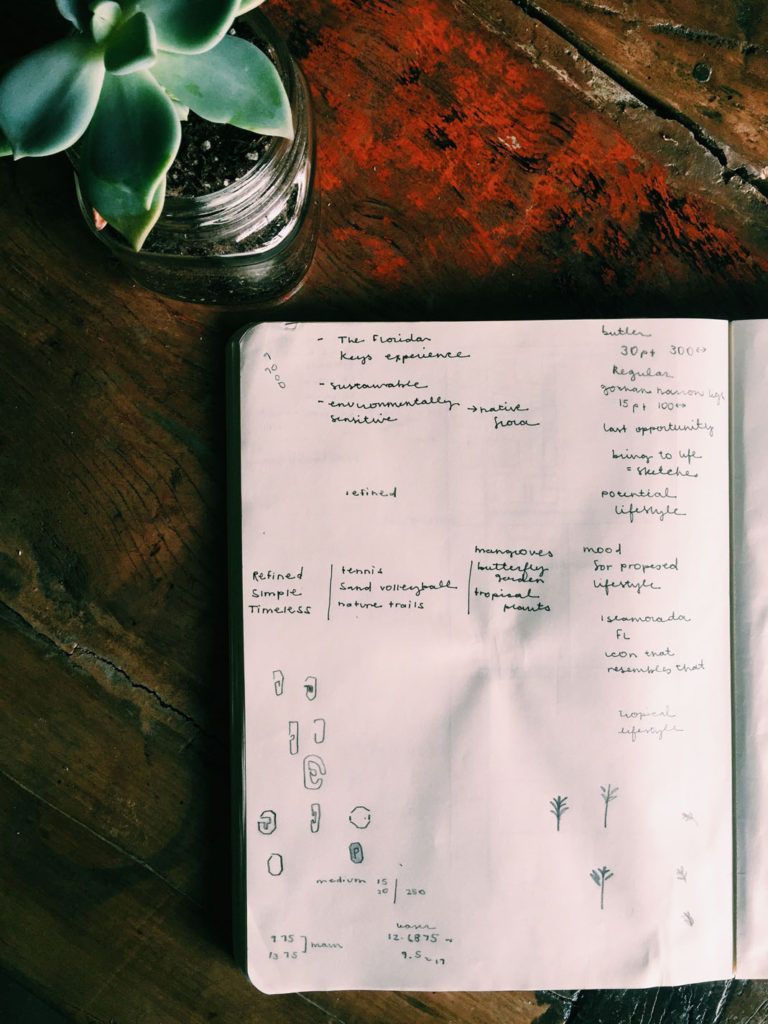 - The Floridan
Keys experience
- sustainable
- environmentally
sensitive
→ native
flora
refined
Refined
Simple
Timeless
tennis
Sand volleyball
nature trails
mangroves
butterfly
garden
tropical
plants
butler
30pt 300↔
Regular
narrow
15pt 100↔
last opportunity
bring to life
= sketches
potential
lifestyle
mood
for proposed
lifestyle
islamorada
FL
icon that
resembles that
tropical
lifestyle
P
medium 15
20 | 250
9.75
13.75 ] main
12.6875
9.5